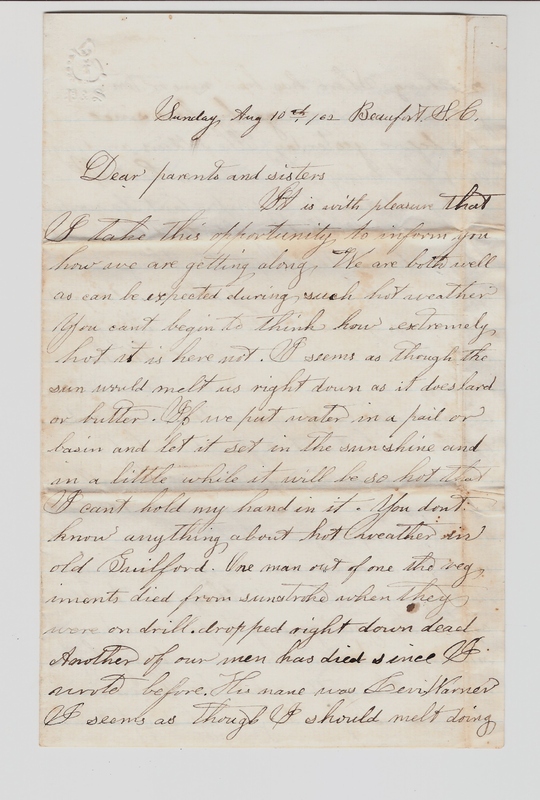 Sunday, Aug 10th, /62 Beaufort. S. C.
Dear parents and sisters
It is with pleasure that
I take this opportunity to inform you
how we are getting along, We are both well
as can be expected during such hot weather
You cant begin to think how extremely
hot it is here not. I seems as though the
sun would melt us right down as it does lard
or butter. If we put water in a pail or
basin and let it set in the sunshine and
in a little while it will be so hot that
I cant hold my hand in it. You dont
know anything about hot weather in
old Guilford. One man out of one the reg
iments died from sunstroke when they
were on drill. dropped right down dead
Another of our men has died since I
wrote before. His name was Levi Warner
I seems as though I should melt doing